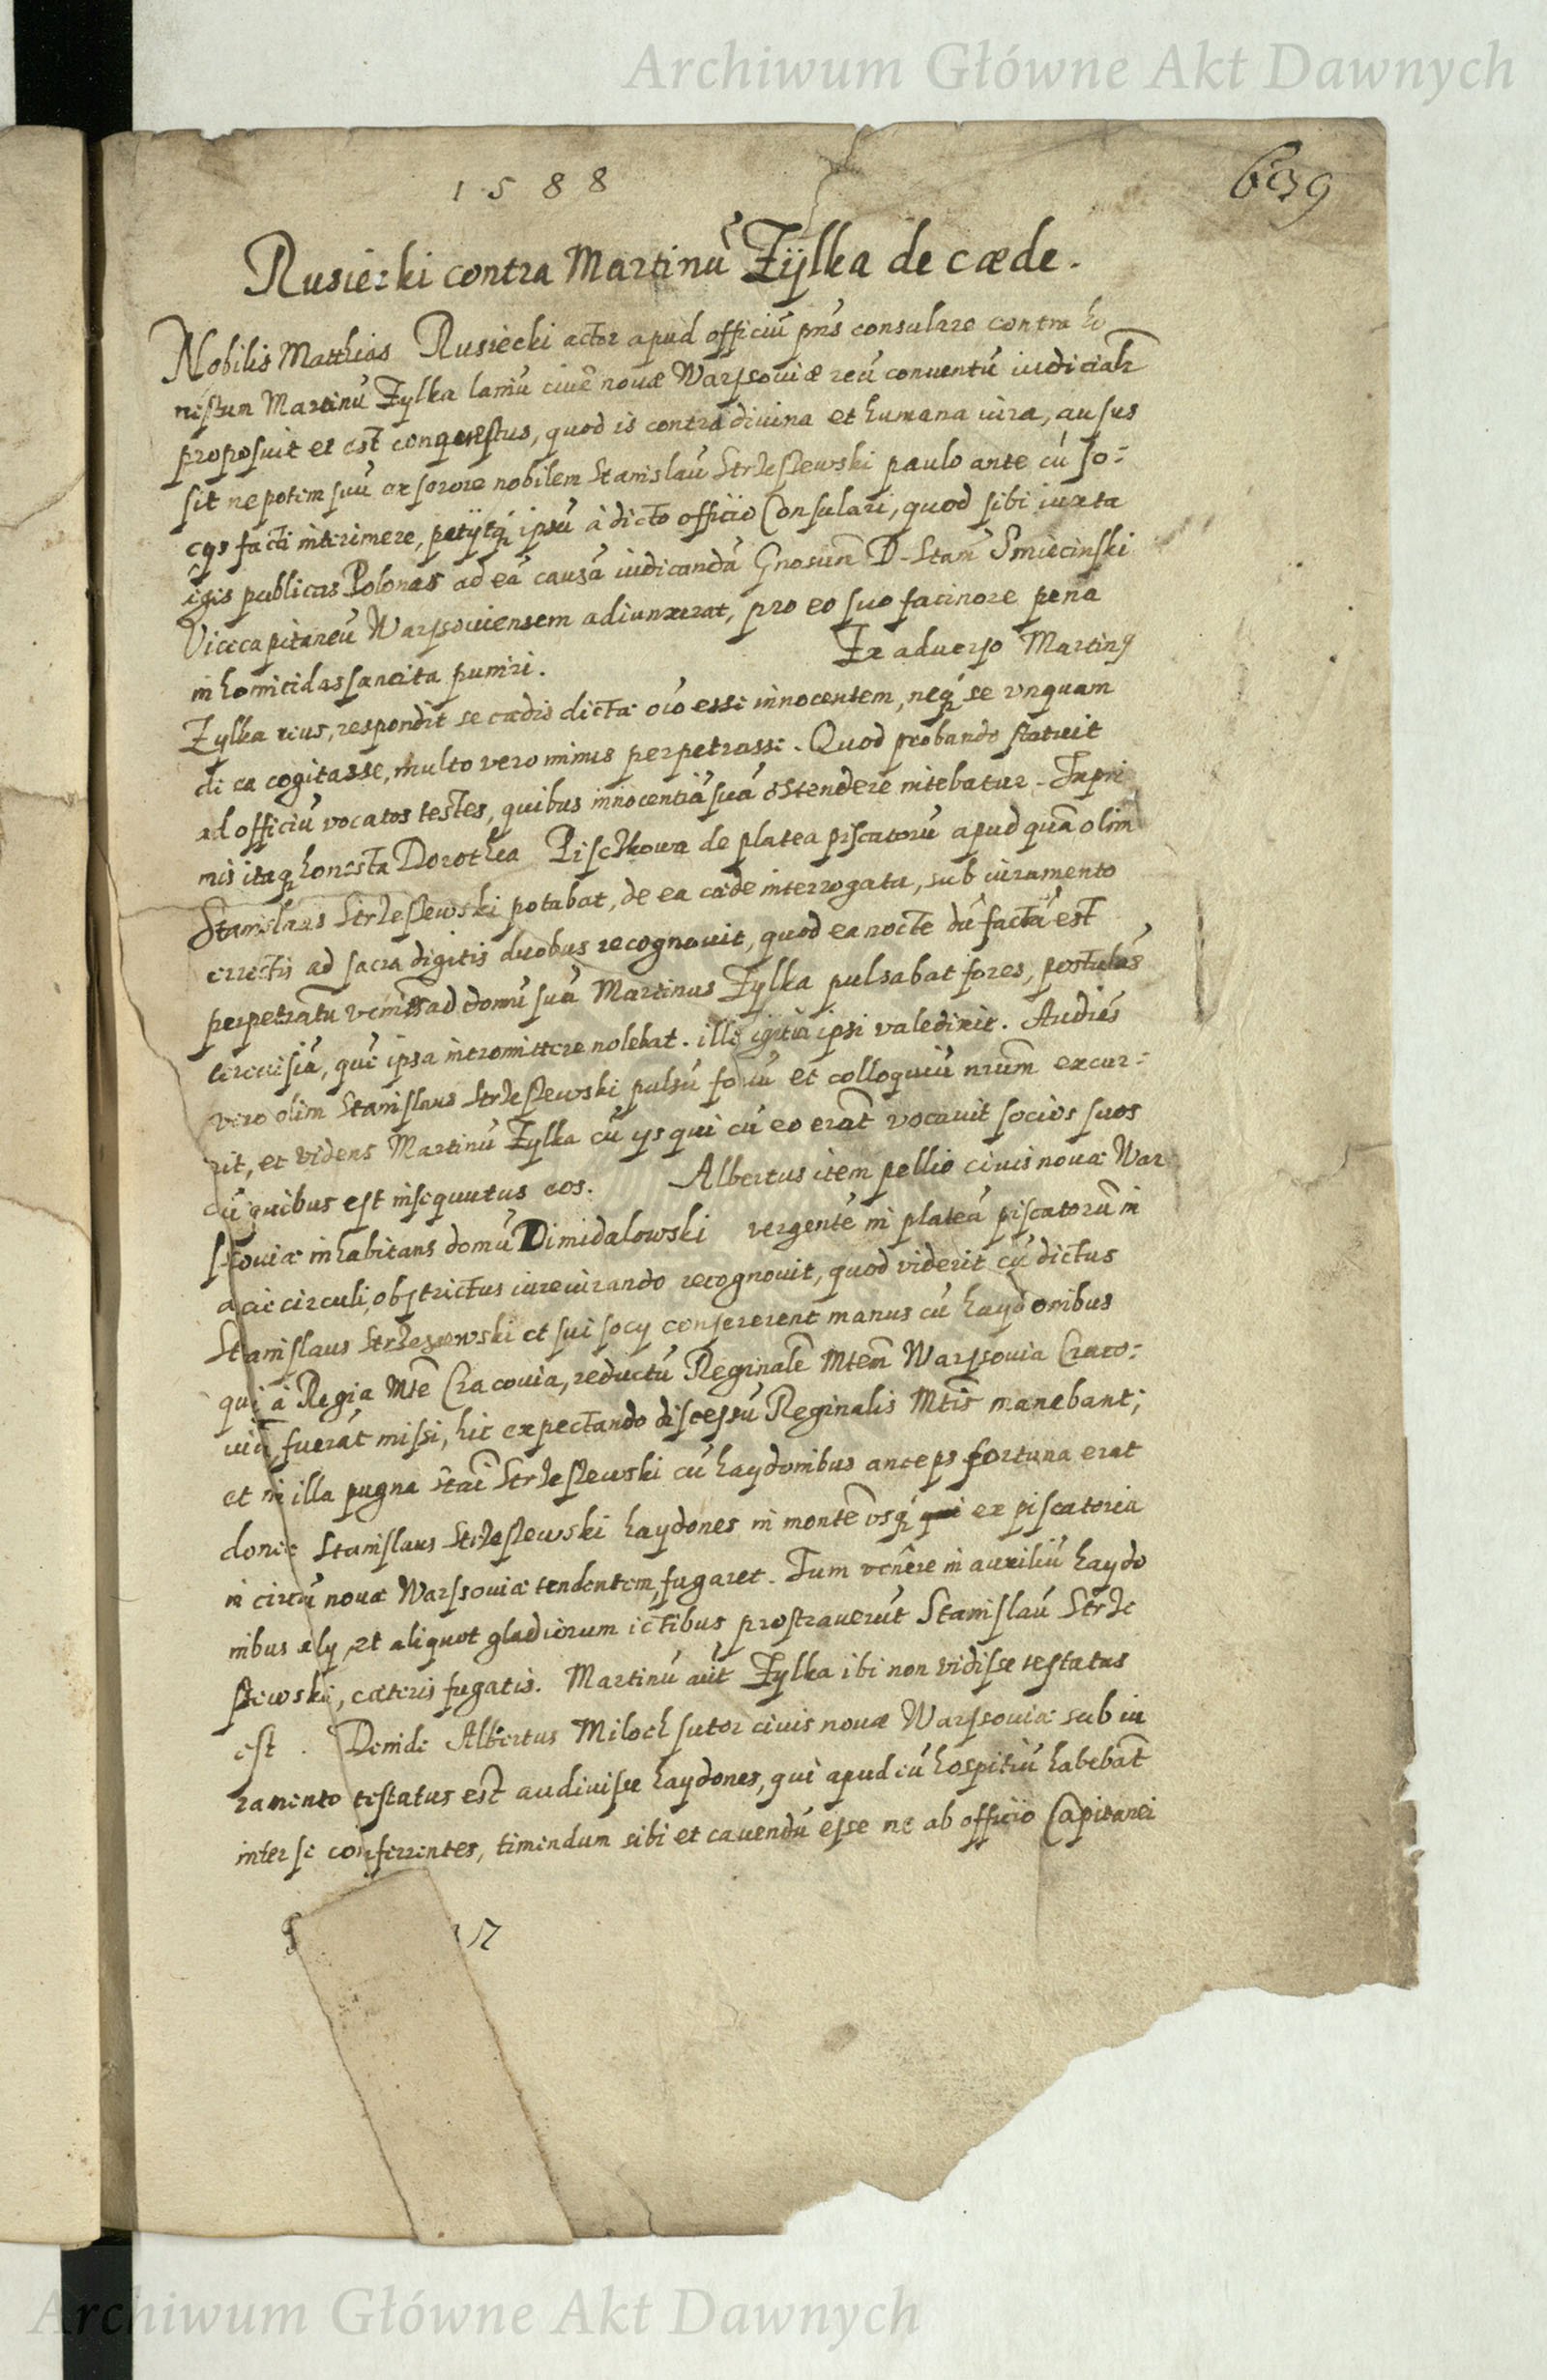 Archiwum Główne Akt Dawnych
1588
639
Rusiecki contra Martinū Zÿlka de cæde.
Nobilis Matthias Rusiecki actor apud officiū pn̄s consulare contra ho
nestum Martinū Zylka laniū civē novæ Warssoviæ reū conventū iudicialr̄
proposuit et est conquestus, quod is contra divina et humana iura, ausus
sit nepotem suū ex sorore nobilem Stanislaū Strzeszewski paulo ante cū so=
cijs facti interimere, petijtq ipsū à dicto officio Consulari, quod sibi iuxta
publicas Polonas ad eā causā iudicandā Gnosum D. Stan Smiecinski
Vicecapitaneū Warssoviensem adiunxerat, pro eo suo facinore pena
in homicidas sancita puniri. Ex adverso Martinus
Zylka reus, respondit se cædis dictæ oīo esse innocentem, neq se unquam
de ea cogitasse, multo vero minus perpetrasse. Quod probando statuit
ad officiū vocatos testes, quibus innocentiā suā ostendere nitebatur. Inpri
mis itaq honesta Dorothea Pisczkowa de platea piscatorū apud quā olim
Stanislaus Strzeszewski potabat, de ea cæde interrogata, sub iuramento
erectis ad sacra digitis duobus recognovit, quod ea nocte dū factū est
perpetratū veniēs ad domū suā Martinus Zylka pulsabat fores, postulās
cerevisiā, quē ipsa intromittere nolebat. ille igitur ipsi valedixit. Audiēs
vero olim Stanislaus Strzeszewski pulsū foriū et colloquiū excur=
rit, et videns Martinū Zylka cū ijs qui cū eo erāt vocavit socios suos
cū quibus est insequutus eos. Albertus item pellio civis novæ War
ssoviæ inhabitans domū Dimidalowski vergentē in plateā piscatorū in
acie circuli, obstrictus iureiurando recognovit, quod viderit cū dictus
Stanislaus Strzeszewski et sui socij consererent manus cū haydonibus
qui à Regia Mte Cracovia, reductū Reginalē Mtem Warssovia Craco=
viā fuerāt missi, hic expectando discessū Reginalis Mtis manebant;
et in illa pugna Stāi Strzeszewski cū haydonibus anceps fortuna erat
donec Stanislaus Strzeszewski haydones in montē usq ex piscatoria
in circū novæ Warssoviæ tendentem, fugaret. Tum venēre in auxiliū haydo
nibus alij, et aliquot gladiorum ictibus prostraverūt Stanislaū Strze
szewski, cæteris fugatis. Martinū aūt Zylka ibi non vidisse testatus
est. Deinde Albertus Miloch sutor civis novæ Warssoviæ sub iu
ramento testatus est audivisse haydones, qui apud eū hospitiū habebāt
inter se conferentes, timendum sibi et cavendū esse ne ab officio Capitanei
Archiwum Główne Akt Dawnych